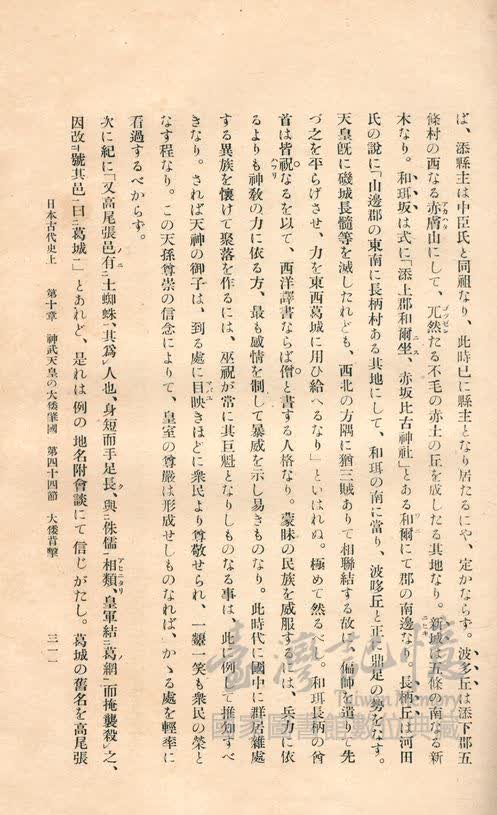 ば、添縣主は中臣氏と同祖なり、此時已に縣主となり居たるにや、定かならず。波多丘は添下郡五
條村の西なる赤膚山にして、兀然たる不毛の赤土の丘を成したる其地なり。新城は五條の南なる新
木なり。和珥坂は式に「添上郡和爾坐、赤坂比古神社」とある和爾にて郡の南邊なり、長柄丘は河田
氏の說に「山邊郡の東南に長柄村ある其地にして、和珥の南に當り、波哆丘と正に鼎足の勢をなす。
天皇旣に磯城長髓等を滅したれども、西北の方隅に猶三賊ありて相聯結する故に、偏師を遣りて先
づ之を平らげさせ、力を東西葛城に用ひ給へるなり」といはれぬ。極めて然るべし。和珥長柄の酋
首は皆祝なるを以て、西洋譯書ならば僧と書する人格なり。蒙昧の民族を威服するには、兵力に依
るよりも神敎の力に依る方、最も感情を制して暴威を示し易きものなり。此時代に國中に群居雜處
する異族を懷けて聚落を作るには、巫祝が常に其巨魁となりしものなる事は、此三例して推知すべ
きなり。されば天神の御子は、到る處に目映きほどに衆民より尊敬せられ、一顰一笑も衆民の榮と
なす程なり。この天孫尊崇の信念によりて、皇室の尊嚴は形成せしものなれば、かゝる處を輕率に
看過するべからず。
次に紀に「又高尾張邑有土蜘蛛、其爲人也、身短而手足長、與侏儒相類、皇軍結葛網而掩襲殺之、
因改號其邑曰葛城」とあれど、是れは例の地名附會談にて信じがたし。葛城の舊名を高尾張
日本古代史上　第十章　神武天皇の大倭肇國　第四十四節　大倭背擊　三一一
臺灣世記憶
Taiwan Memory
國家圖書館數位典藏